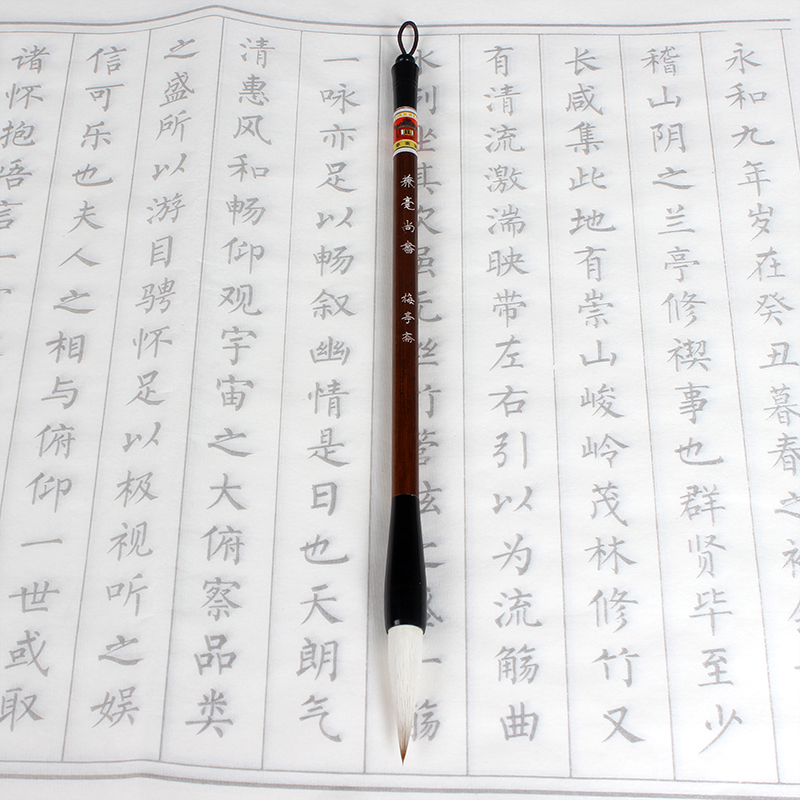 永和九年岁在癸丑暮春之初会
稽山阴之兰亭修禊事也群贤毕至少
长咸集此地有崇山峻岭茂林修竹又
有清流激湍映带左右引以为流觞曲
水列坐其次虽无丝竹管弦之盛一觞
一咏亦足以畅叙幽情是日也天朗气
清惠风和畅仰观宇宙之大俯察品类
之盛所以游目骋怀足以极视听之娱
信可乐也夫人之相与俯仰一世或取
诸怀抱悟言一
毫尚斋
梅亭斋